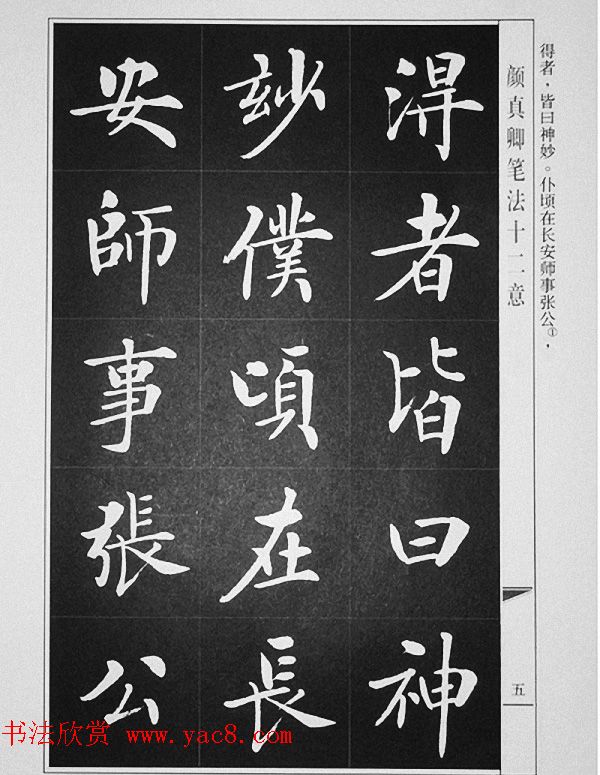 得者，皆曰神妙。仆顷在长安师事张公①，
颜真卿笔法十二意
五
淂者皆曰神
玅僕頃在長
安師事張公
书法欣赏 www.yac8.com